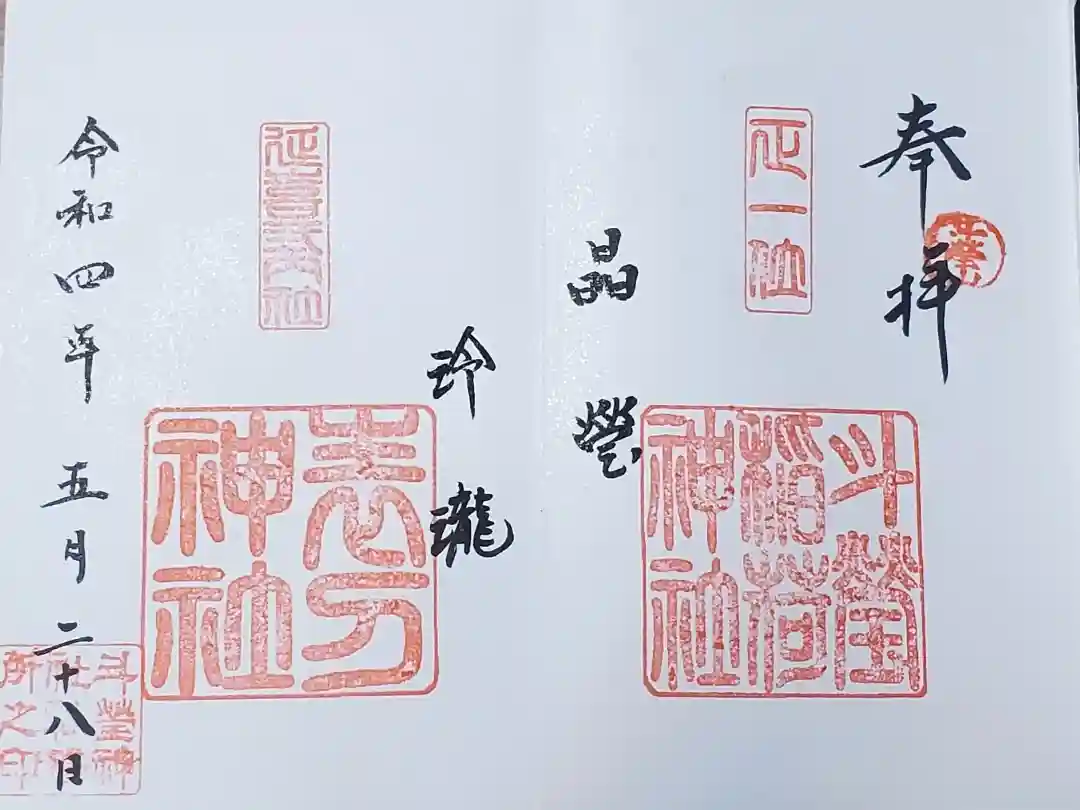 奉拝
正一位
斗瑩稲荷神社
晶瑩
玲瓏
延喜式社
表刀神社
令和四年五月二十八日
斗瑩神社社務所之印